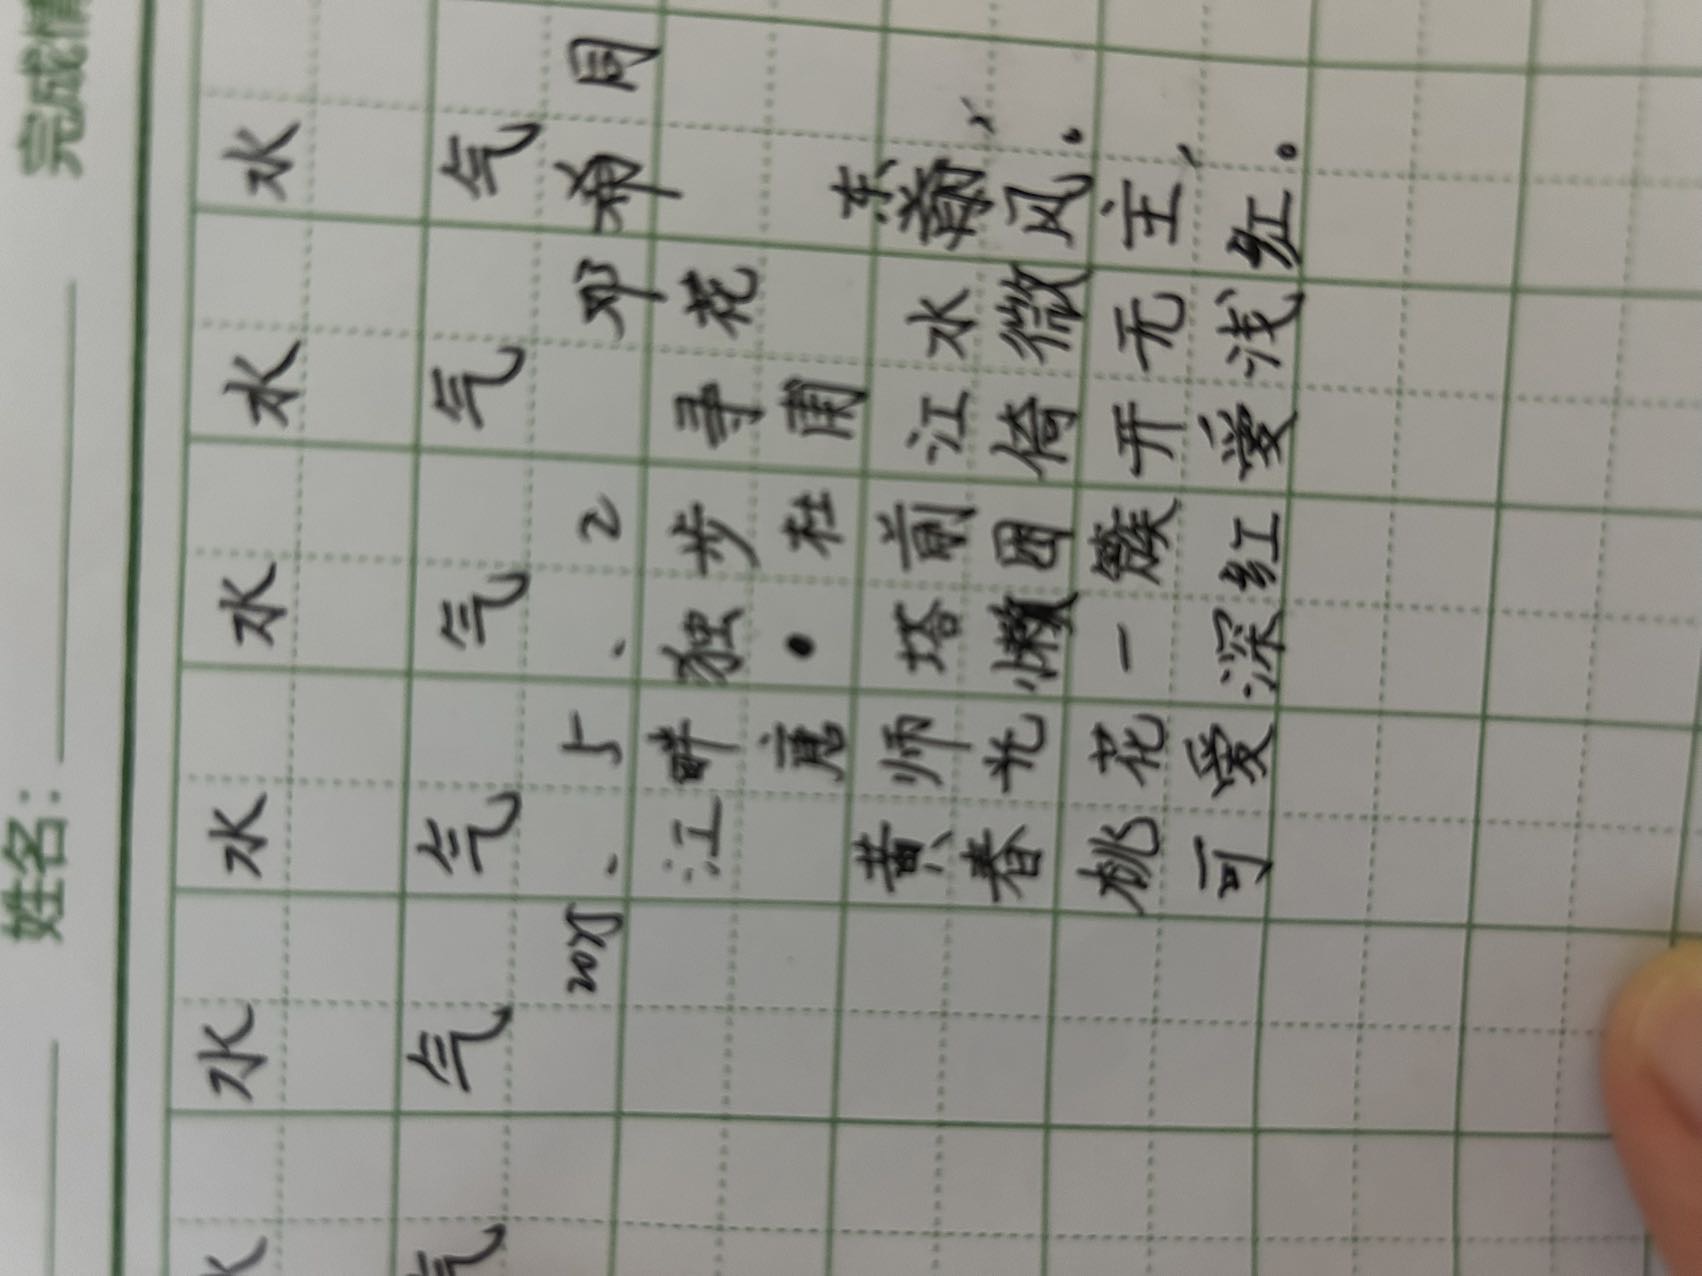 姓名: 完成情
水 水 水 水 水 水
气 气 气 气 气 气
2025、5、2 邓
江畔独步寻花
唐·杜甫
黄师塔前江水东,
春光懒困倚微风。
桃花一簇开无主,
可爱深红爱浅红。